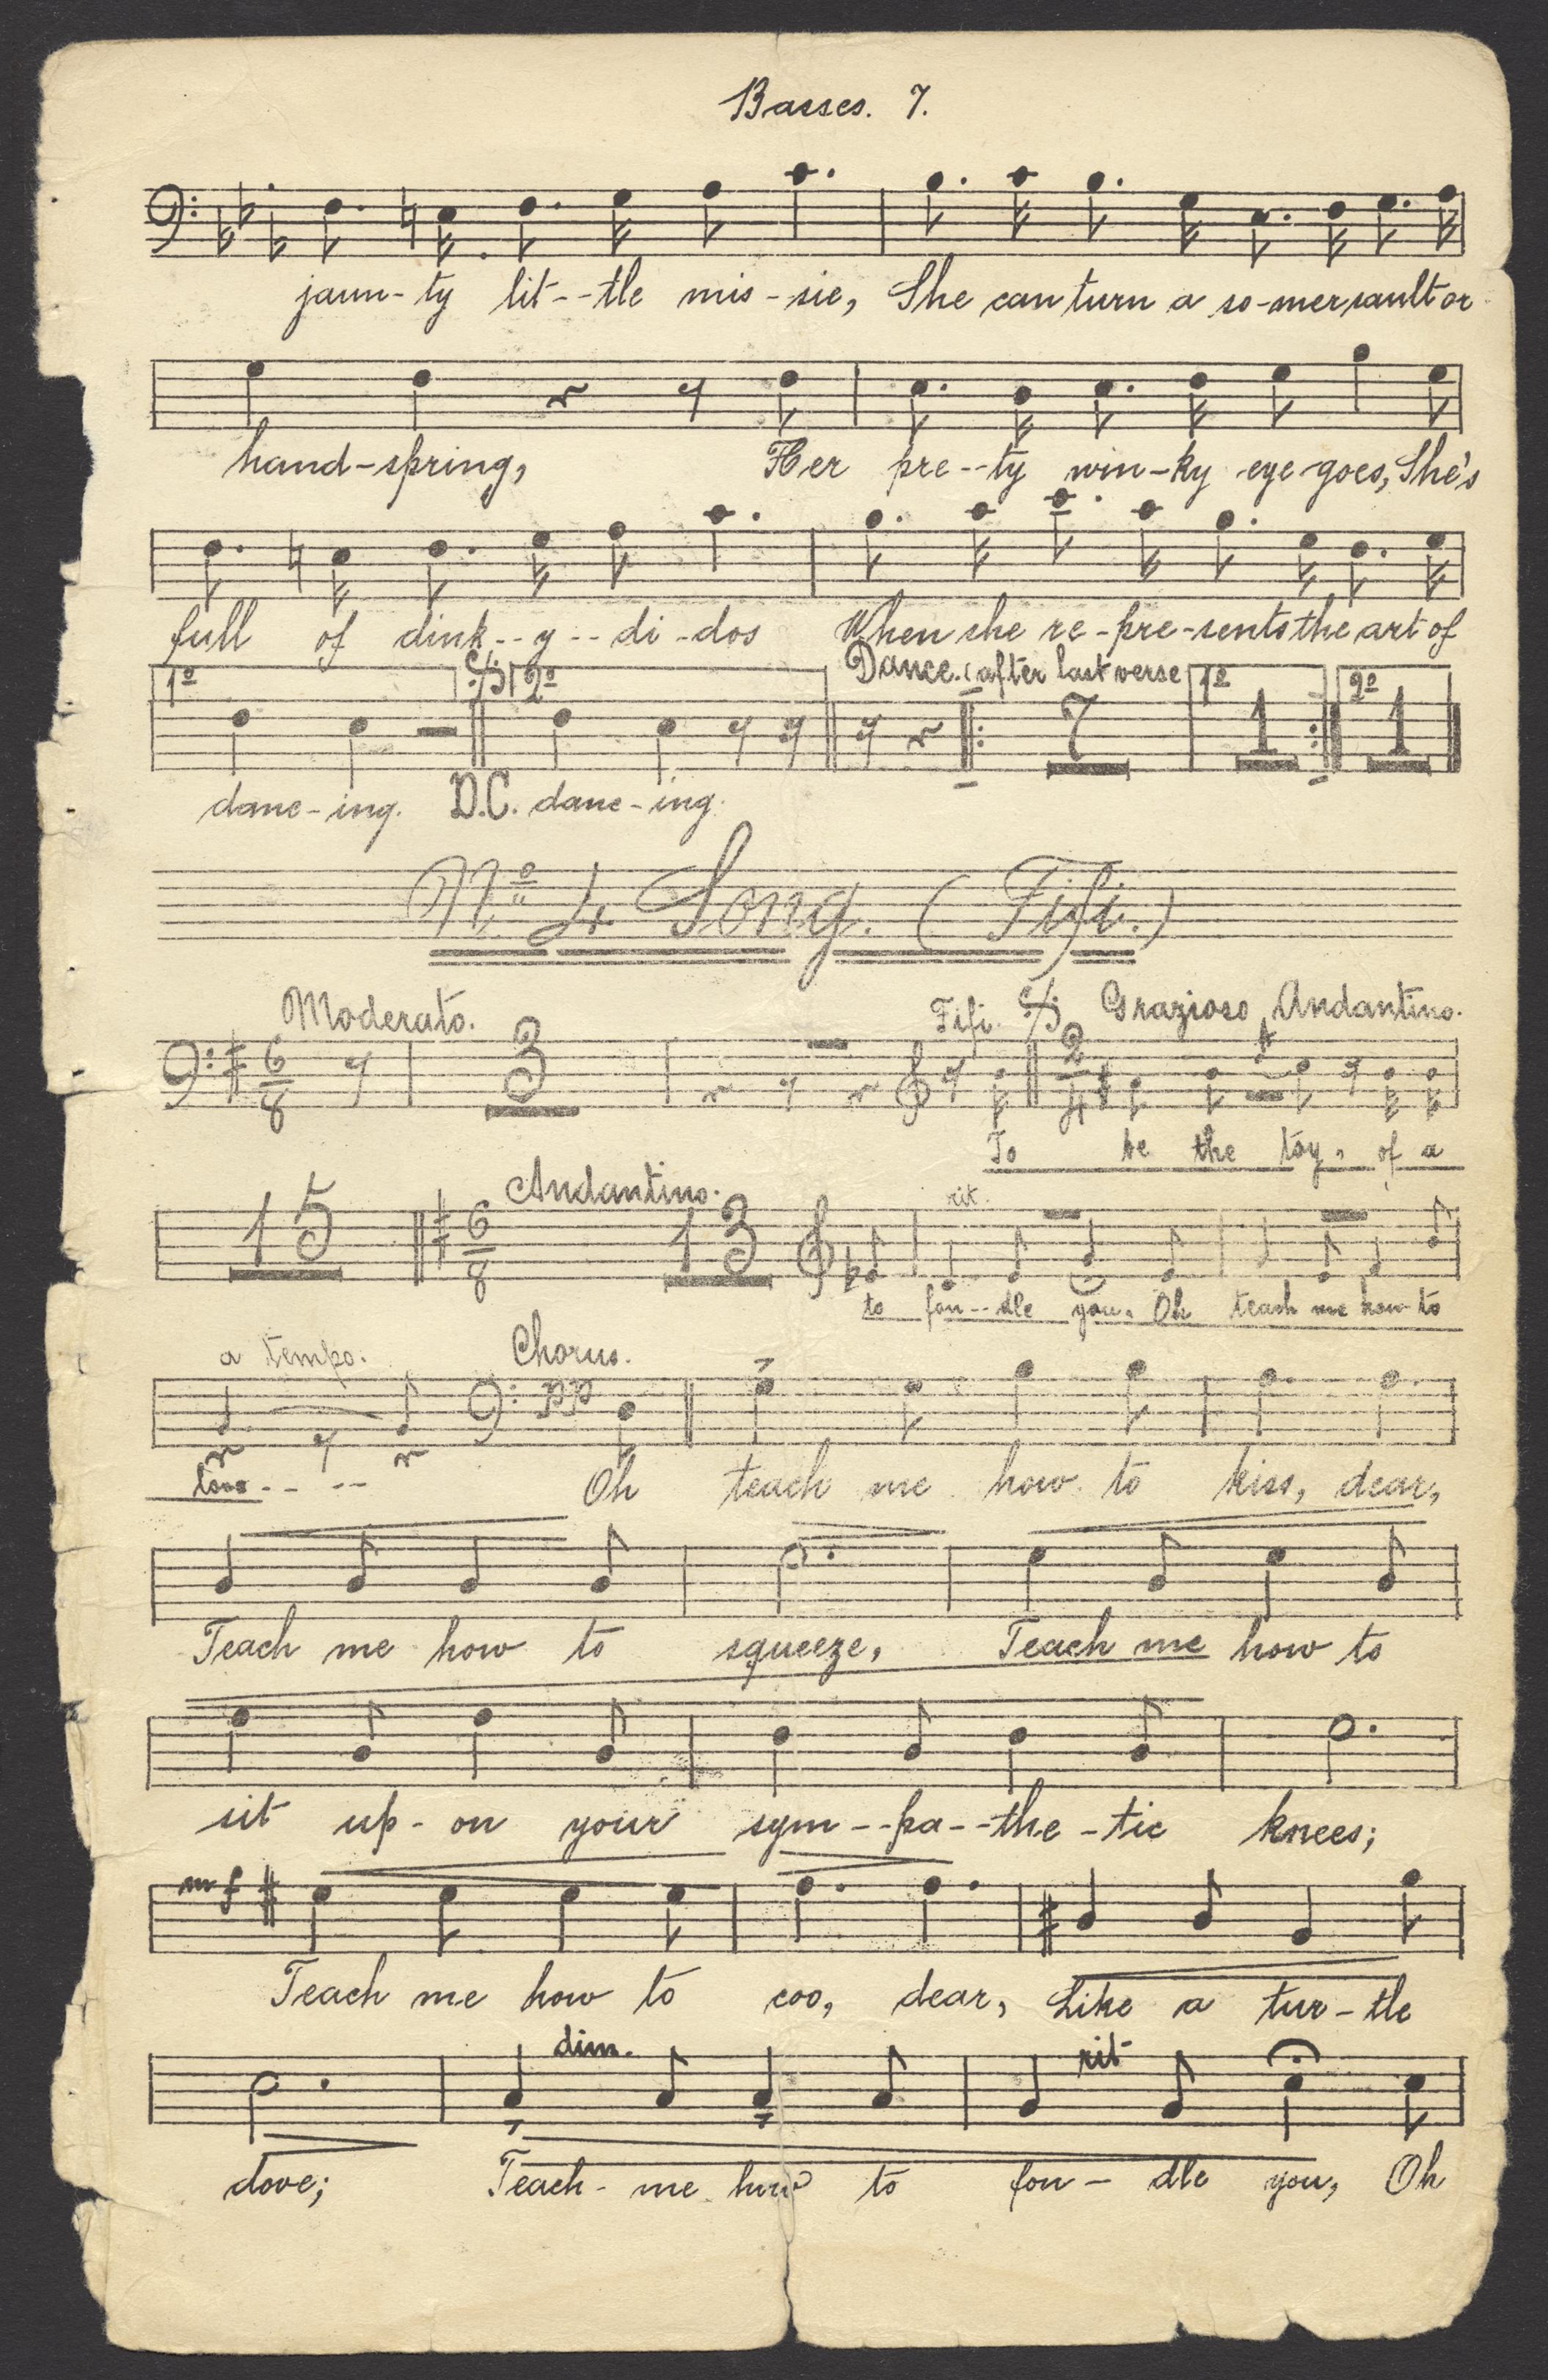 Basses. 7.
jaun-ty lit--tle mis-sie, She can turn a so-mersault or
hand-spring, Her pre--ty win-ky eye goes, She's
full of dink--y--di-dos When she re-pre-sents the art of
1º 2º Dance. (after last verse 1º 2º
7 1 1
danc-ing. D.C. danc-ing.
Nº 4 Song. (Fifi.)
Moderato. Fifi. Grazioso Andantino.
6/8 3 2/4
To be the toy, of a
Andantino. rit.
15 6/8 13
to fon--dle you, Oh teach me how to
a tempo. Chorus.
pp
love---- Oh teach me how to kiss, dear,
Teach me how to squeeze, Teach me how to
sit up-on your sym--pa--the-tic knees;
mf
Teach me how to coo, dear, Like a tur-tle
dim. rit
dove; Teach-me how to fon-dle you, Oh